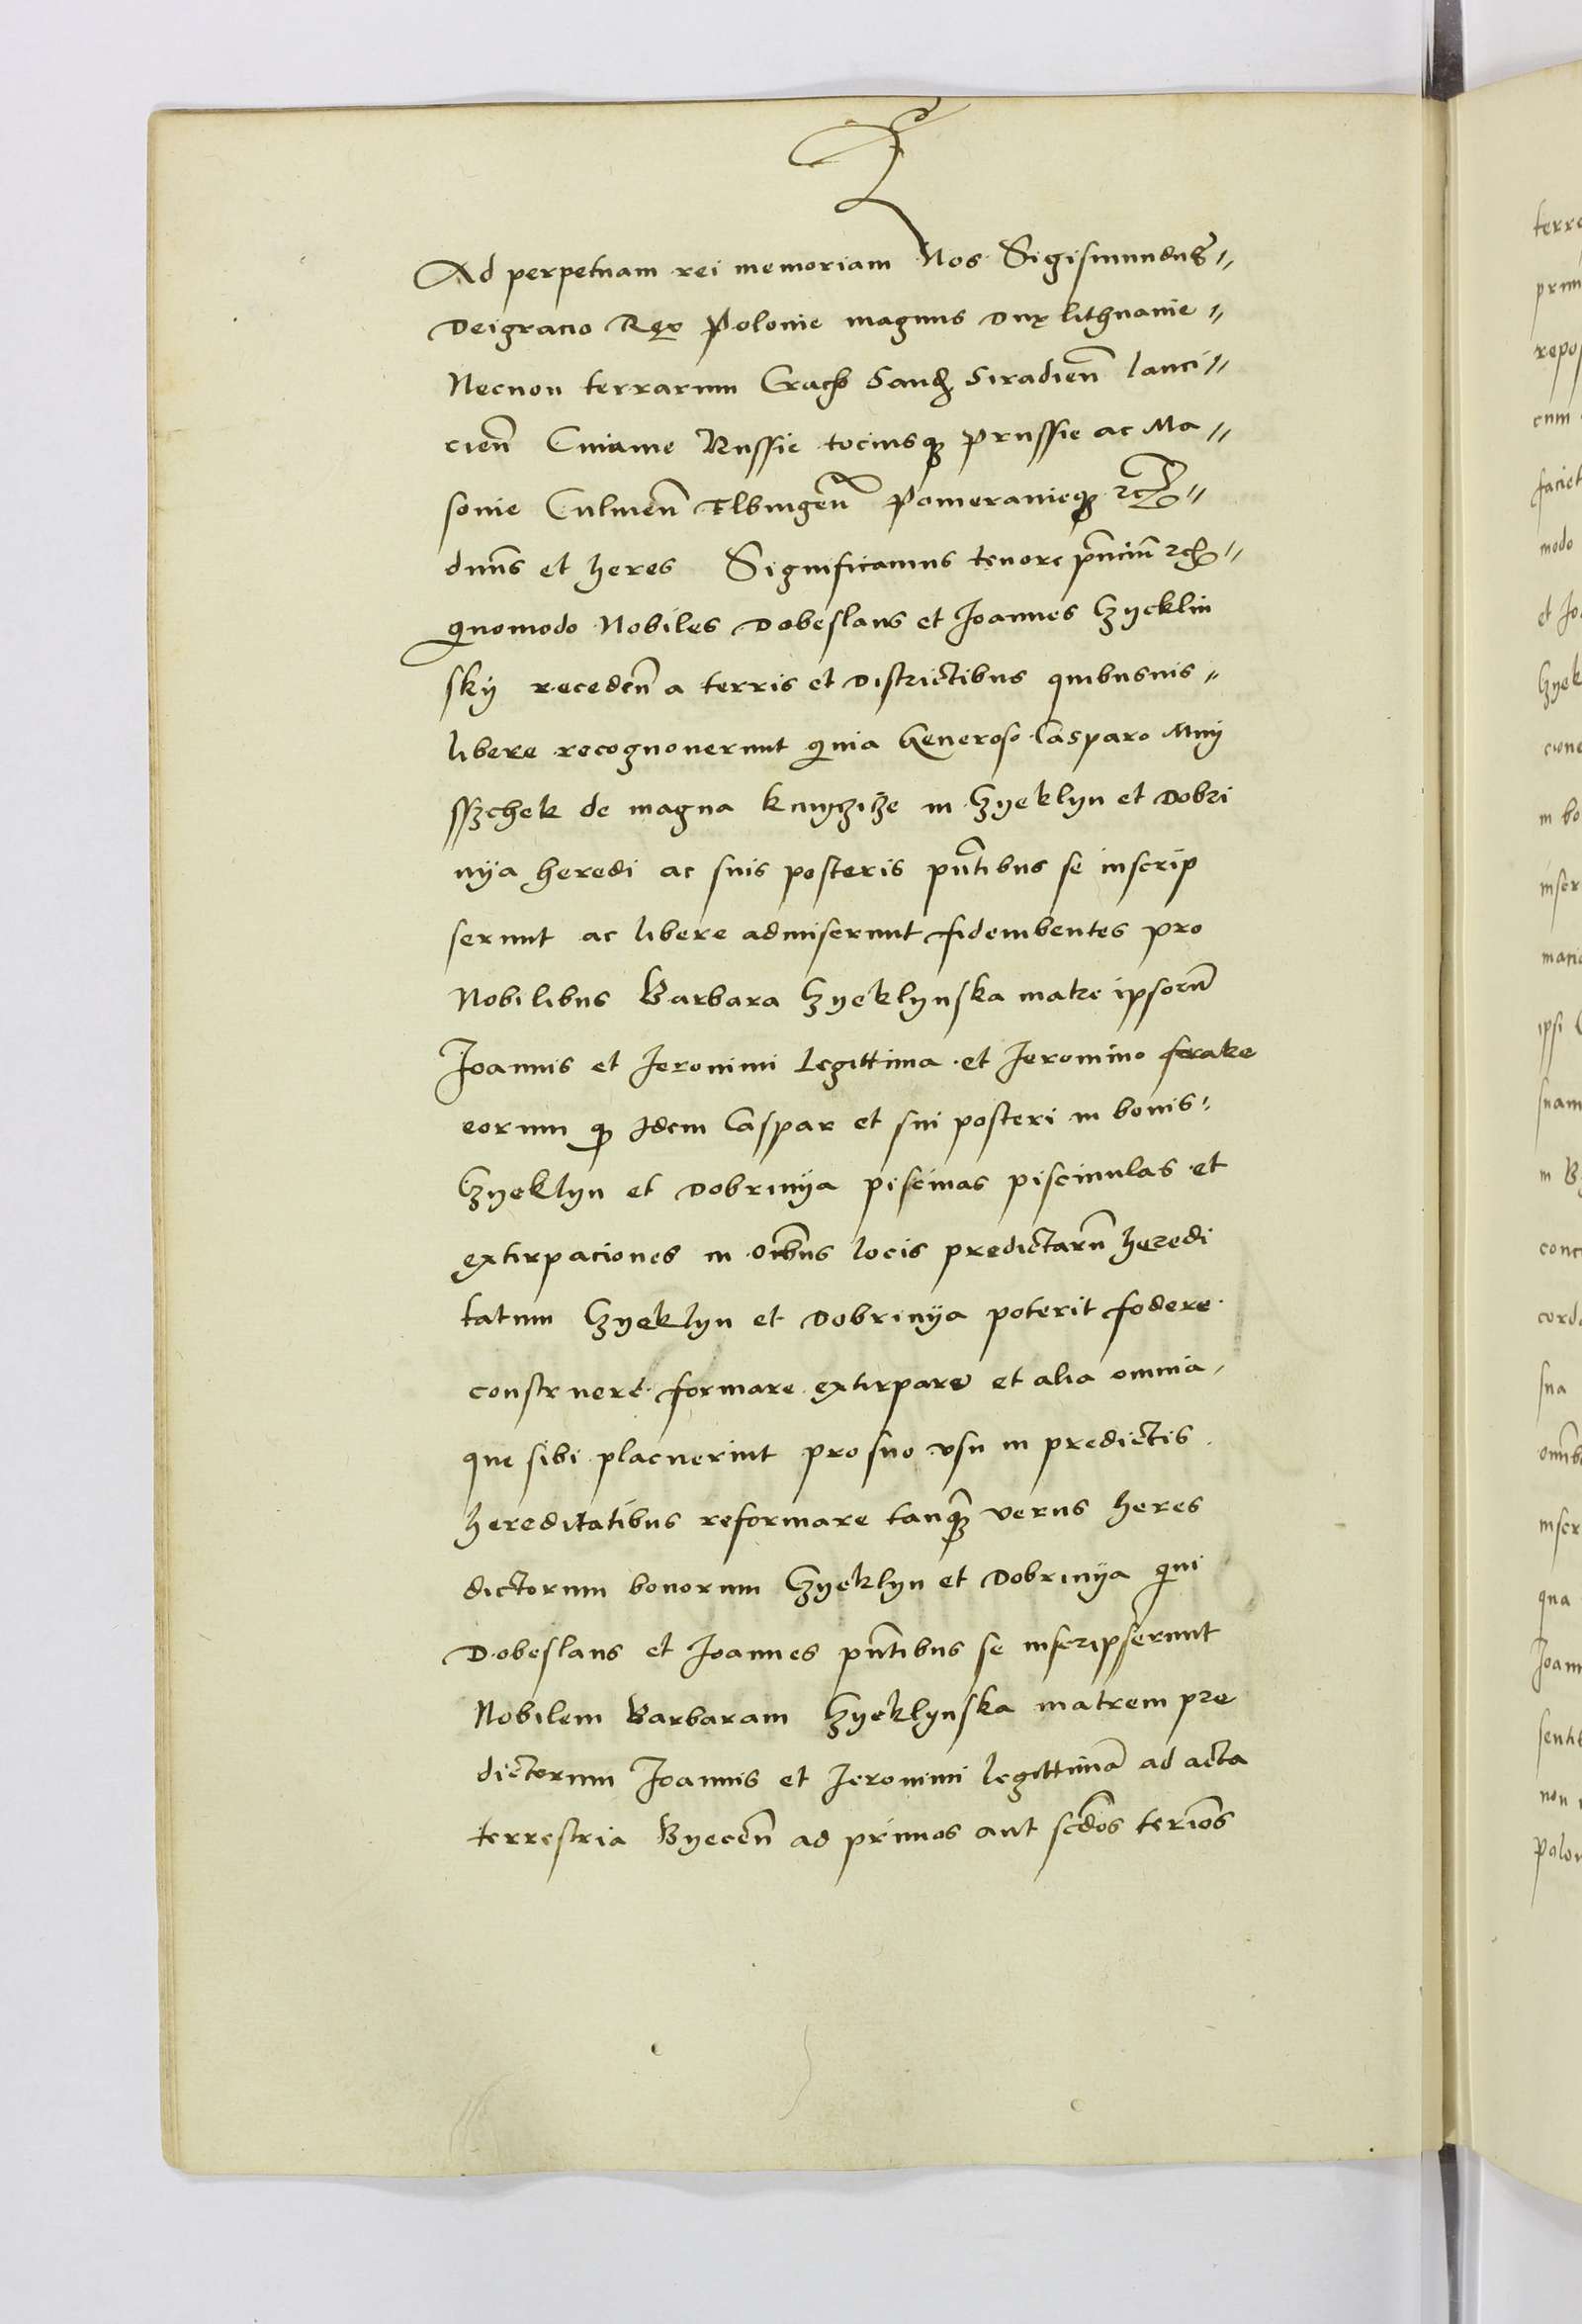 Ad perpetuam rei memoriam Nos Sigismundus
Deigracio Rex Polonie magnus Dux lithuanie
Necnon terrarum Crach Sand Siradien lanci
cien Cuiauie Russie tociusq Prussie ac Ma
souie Culmen Elbingen Pomeranieq
dnns et heres Significamus tenore pncium
quomodo Nobiles Dobeslaus et Joannes Gzyeklin
sky recedenn a terris et Districtibus quibusuis
libere recognouerunt quia Generoso Casparo Mny
sszchek de magna Knyzicze in Gzyeklyn et Dobri
nya heredi ac suis posteris pntibus se inscrip
serunt ac libere admiserunt fidemibentes pro
Nobilibus Barbara Gzyeklynska matre ipsorum
Joannis et Jeronimi Legittima et Jeronimo fratre
eorum q Idem Caspar et sui posteri in bonis
Gzyeklyn et Dobrinya piscinas piscinulas et
extirpaciones in oibus locis predictarum heredi
tatum Gzyeklyn et Dobrinya poterit fodere
construere formare extirpare et alia omnia
que sibi placuerint pro suo vsu in predictis
hereditatibus reformare tanq verus heres
dictorum bonorum Gzyeklyn et Dobrinya qui
Dobeslaus et Joannes pntibus se inscripserunt
Nobilem Barbaram Gzyeklynska matrem pre
dictorum Joannis et Jeronimi legittima ad acta
terrestria Byecen ad primos aut scdos terios